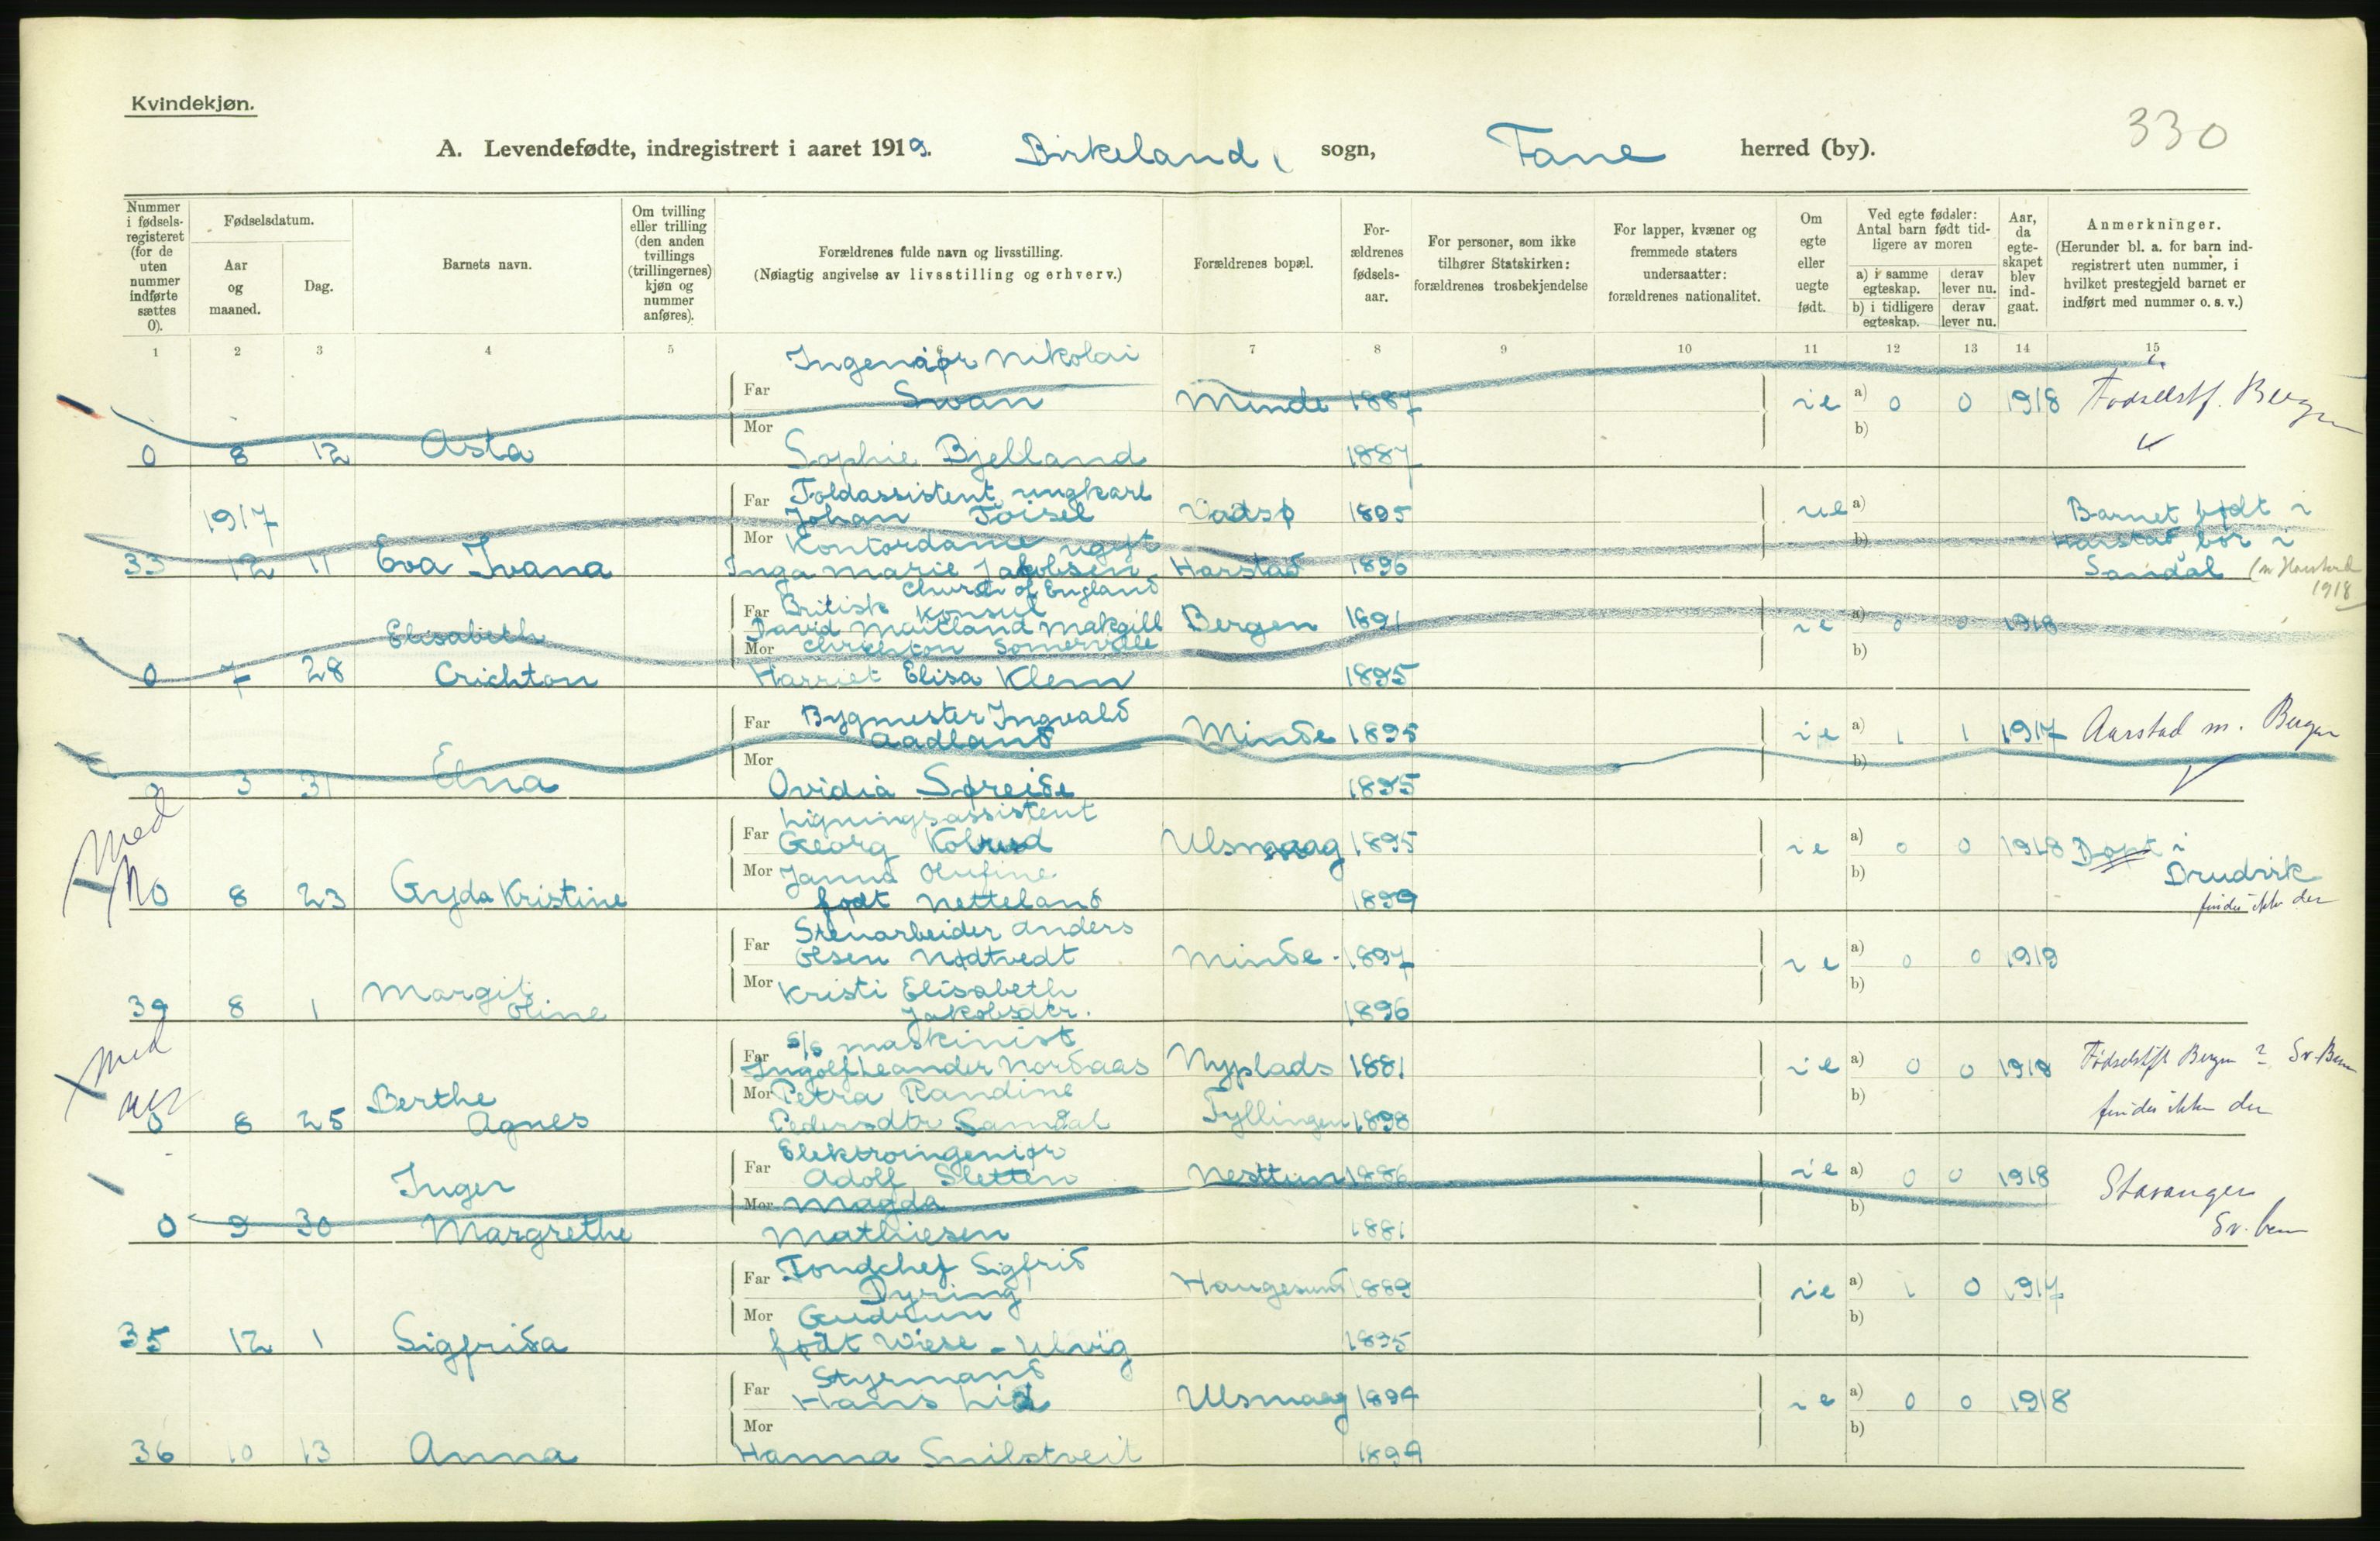 Kvindekjøn.
330
A. Levendefødte, indregistrert i aaret 1919. Birkeland, sogn, Fane herred (by).
Nummer i fødsels-registeret (for de uten nummer indførte sættes 0).
Fødselsdatum.
Aar og maaned.
Dag.
Barnets navn.
Om tvilling eller trilling (den anden tvillings (trillingernes) kjøn og nummer anføres).
Forældrenes fulde navn og livsstilling.
(Nøiagtig angivelse av livsstilling og erhverv.)
Forældrenes bopæl.
For-ældrenes fødsels-aar.
For personer, som ikke tilhører Statskirken: forældrenes trosbekjendelse
For lapper, kvæner og fremmede staters undersaatter: forældrenes nationalitet.
Om egte eller uegte født.
Ved egte fødsler: Antal barn født tid-ligere av moren
a) i samme egteskap.
derav lever nu.
b) i tidligere egteskap.
derav lever nu.
Aar, da egte-skapet blev ind-gaat.
Anmerkninger.
(Herunder bl. a. for barn ind-registrert uten nummer, i hvilket prestegjeld barnet er indført med nummer o. s. v.)
1 2 3 4 5 6 7 8 9 10 11 12 13 14 15
Ingeniør Nikolai
Far Svan Minde 1887 ie a) 0 0 1918 Fødselsst. Bergen
Mor b)
0 8 12 Asta Sophie Bjelland 1887
Far Toldassistent, ungkarl
1917 Johan Toisel Vadsø 1895 ue a) Barnet født i
Mor Kontordame ugift b) Harstad, bor i
33 12 11 Eva Ivana Inga Marie Jakobsen Harstad 1896 Sandal (m Harstad
1918
Church of England
Far Britisk Konsul
David Maitland Makgill Bergen 1891 ie a) 0 0 1918
Elisabeth Mor Chrichton Somerville b)
0 7 28 Crichton Harriet Elisa Klem 1895
Far Bygmester Ingvald
Aadland Minde 1895 ie a) 1 1 1917 Aarstad m. Bergen
Mor b)
0 3 31 Elna Ovidia Søreide 1895
Med
Ligningsassistent
Far Georg Kolrud Ulsmaag 1895 ie a) 0 0 1918 Døpt i
Mor Janna Olufine b) Drudvik
No 0 8 23 Gyda Kristine født Netteland 1899 findes ikke der
Stenarbeider Anders
Far Olsen Nødtvedt Minde 1897 ie a) 0 0 1919
Margit Mor Kristi Elisabeth b)
39 8 1 Oline Jakobsdtr. 1896
Med
s/s maskinist
Far Ingolf Leander Nordaas Nyplads 1881 ie a) 0 0 1918 Fødselsst Bergen ? Sv. Ben
Berthe Mor Petra Randine b) findes ikke der
0 8 25 Agnes Pedersdtr Samdal Fyllingen 1898
Elektroingeniør
Inger Far Adolf Sletten Nesttun 1886 ie a) 0 0 1918 Stavanger
Mor Magda b) Sv. ben
0 9 30 Margrethe Mathiesen 1881
Far Fondchef Sigfrid
Dyring Haugesund 1889 ie a) 1 0 1917
Mor Gudrun b)
35 12 1 Sigfrida født Wiese - Ulvig 1895
Styrmand
Far Hans Lid Ulsmaag 1894 ie a) 0 0 1918
Mor b)
36 10 13 Anna Hanna Smilstveit 1899